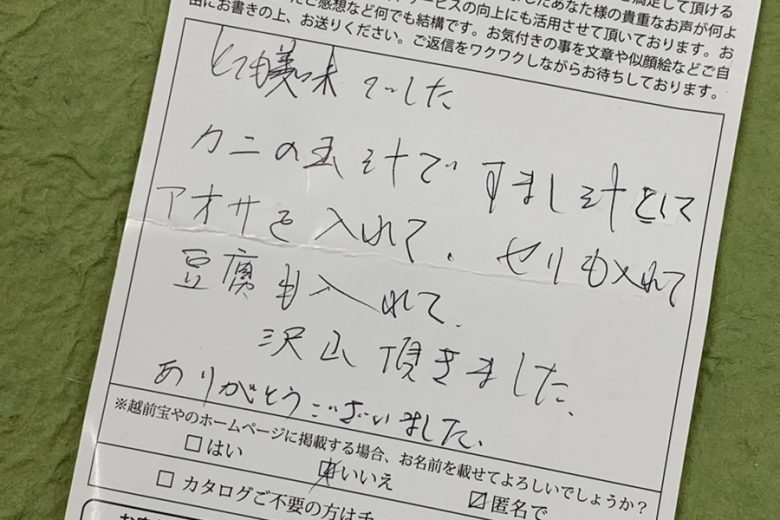 サービスの向上にも活用させて頂いております。お
ご感想など何でも結構です。お気付きの事を文章や似顔絵などご自
由にお書きの上、お送りください。ご返信をワクワクしながらお待ちしております。
とても美味でした
カニの玉汁で すまし汁として
アオサを入れて、セリも入れて
豆腐も入れて、
沢山頂きました、
ありがとうございました、
※越前宝やのホームページに掲載する場合、お名前を載せてよろしいでしょうか?
□はい □いいえ ☑匿名で
□ カタログご不要の方は